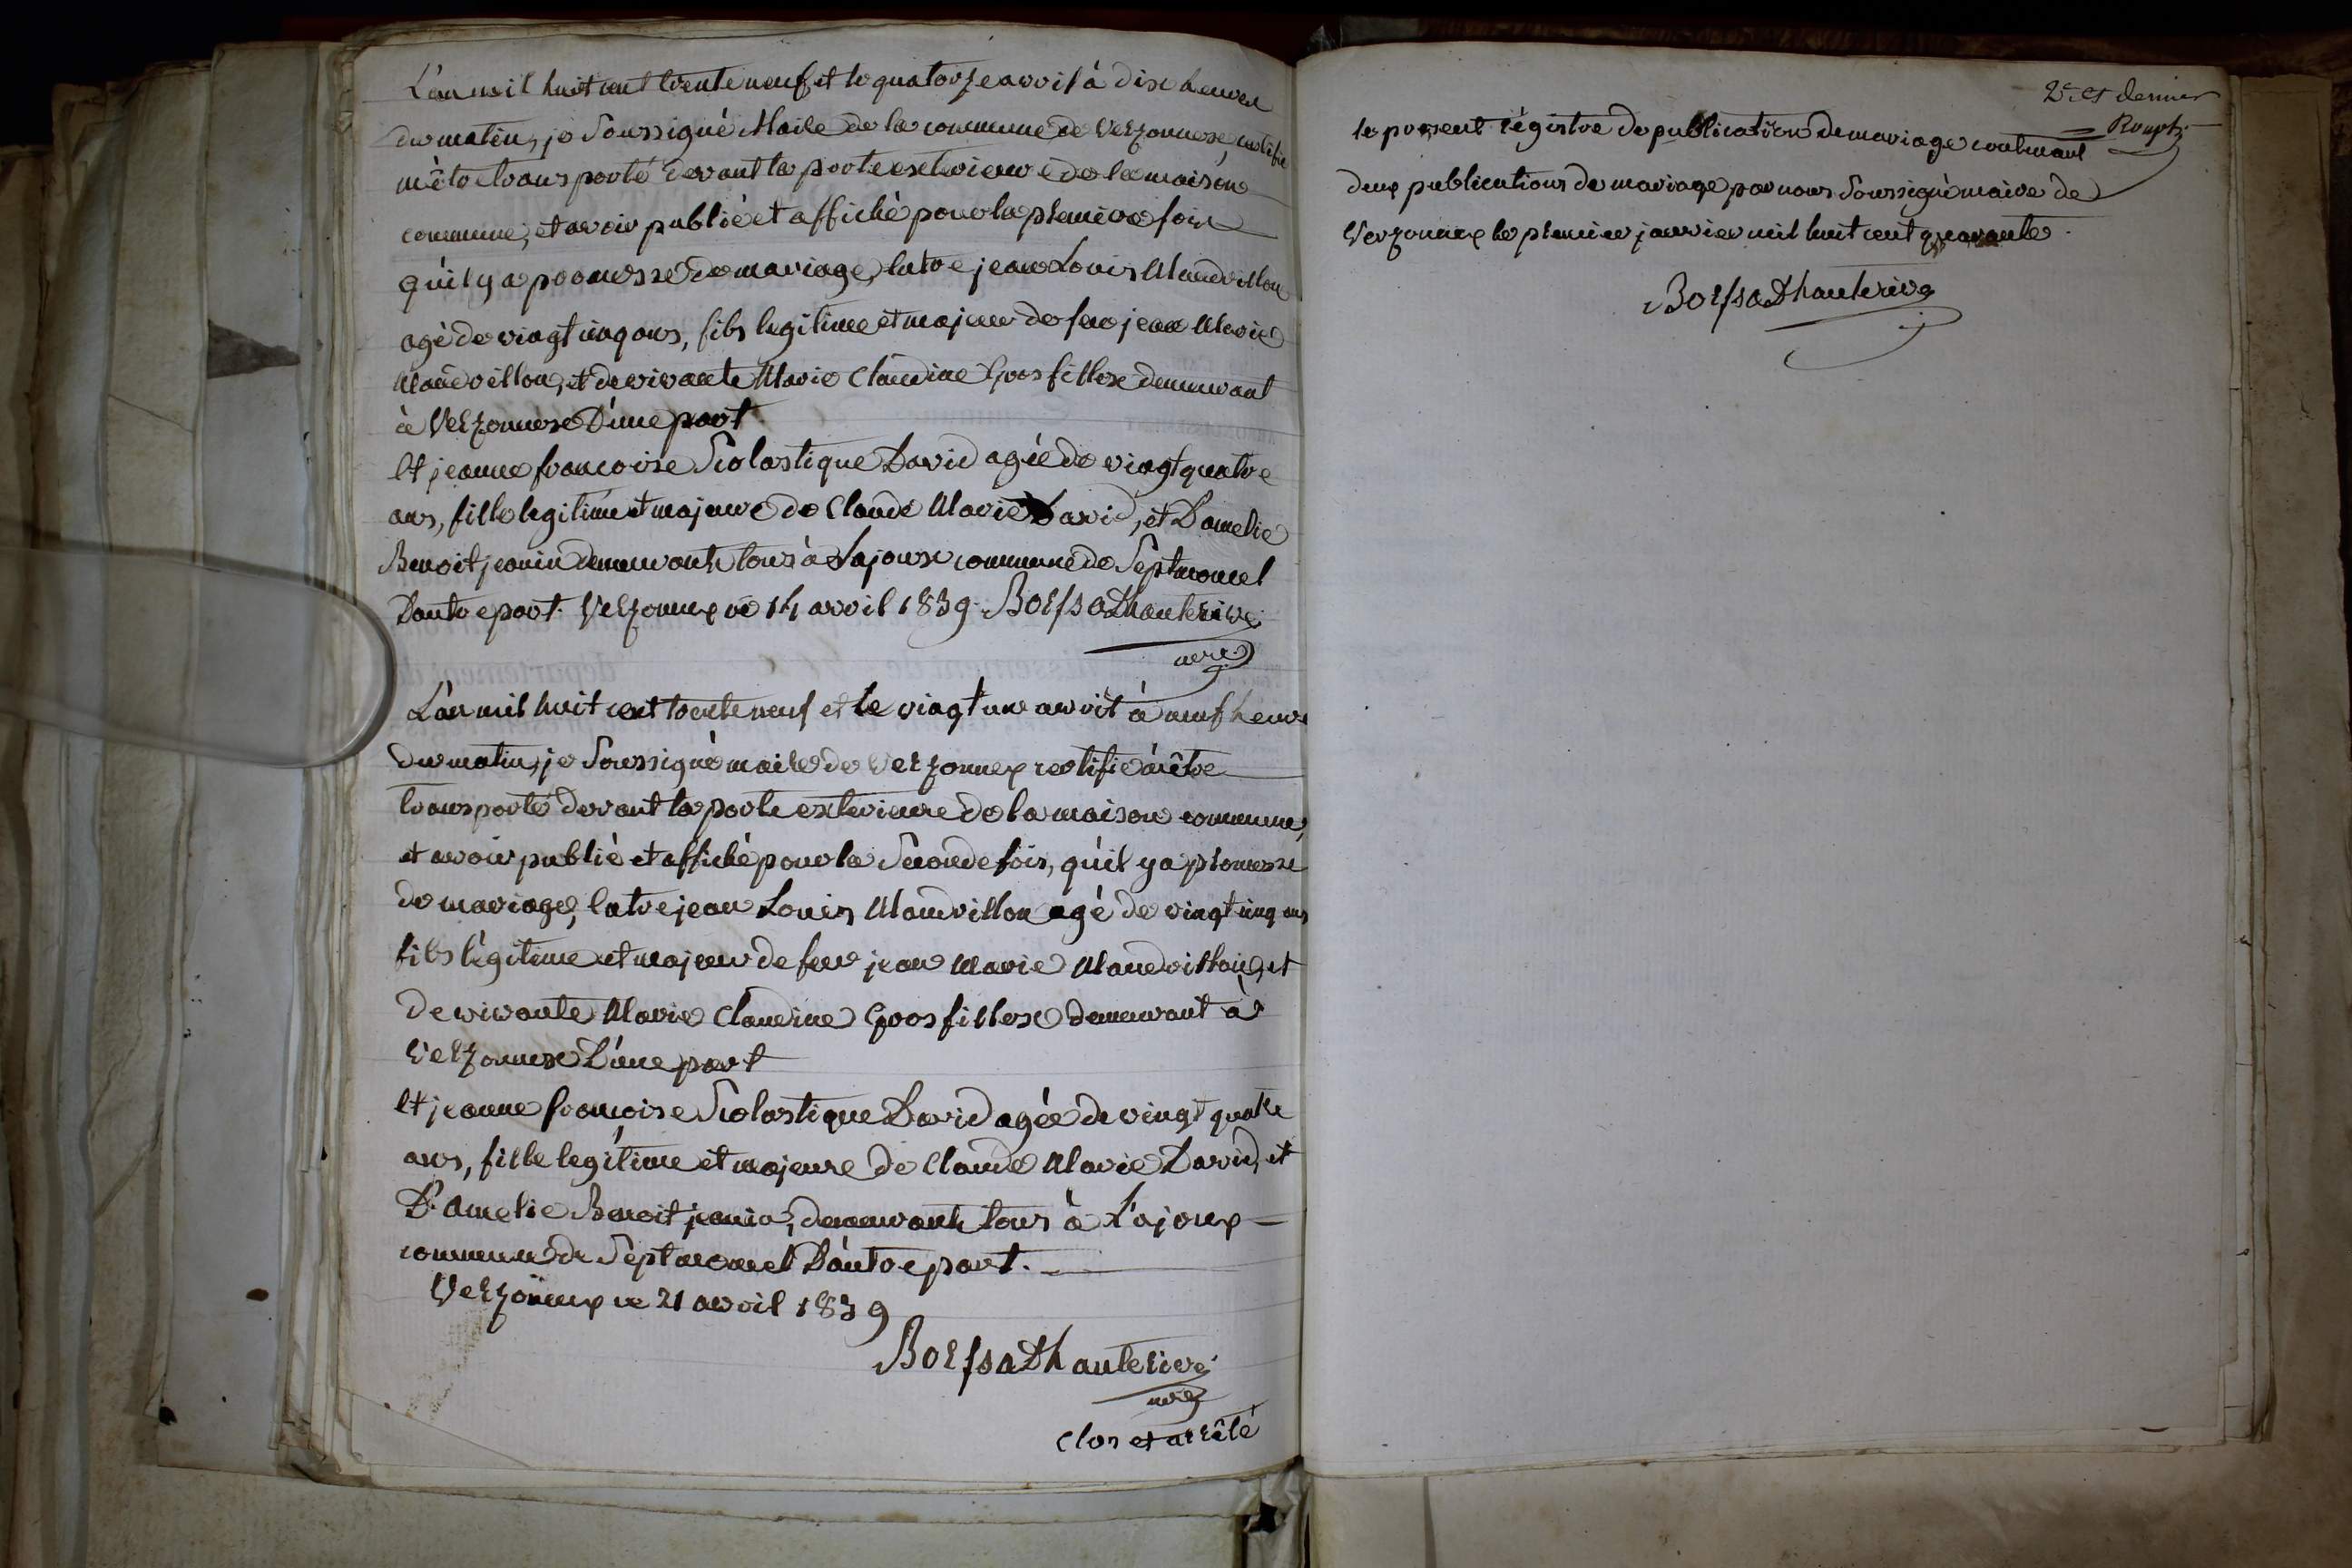 L'an mil huit cent trente neuf et le quatorze avril à dix heures
du matin, je soussigné Maire de la commune de Verzonnex, certifie
m'être transporté devant la porte exterieure de la maison
commune, et avoir publié et affiché pour la premiere fois
qu'il y a promesse de mariage, entre jean Louis Mandrillon
agé de vingt cinq ans, fils legitime et majeur de feu jean Marie
Mandrillon, et de vivante Marie Claudine Grosfillex demeurant
à Verzonnex D'une part
Et jeanne francoise Scolastique David agée de vingt quatre
ans, fille legitime et majeure de Claude Marie David, et D'amelie
Benoit jeanin demeurants tous à Lajoux commune de Septmoncel
D'autre part. Verzonnex ce 14 avril 1839. Borssat Dhauterive
mre
L'an mil huit cent trente neuf et le vingt un avril à neuf heures
du matin, je soussigné maire de Verzonnex certifie m'être
transporté devant la porte exterieure de la maison commune,
et avoir publié et affiché pour la seconde fois, qu'il y a promesse
de mariage, entre jean Louis Mandrillon agé de vingt cinq ans
fils légitime et majeur de feu jean Marie Mandrillon, et
de vivante Marie Claudine Grosfillex demeurant à
Verzonnex D'une part
Et jeanne françoise Scolastique David agée de vingt quatre
ans, fille legitime et majeure de Claude Marie David, et
D'amelie Benoit jeanin, demeurants tous à L'ajoux
commune de Septmoncel D'autre part.
Verzonnex ce 21 avril 1839
Borssat Dhauterive
mre
Clos et arrêté
2e et dernier
le present régistre de publication de mariage contenant
deux publications de mariage par nous soussigné maire de
Verzonnex le premier janvier mil huit cent quarante.
Borssat Dhauterive